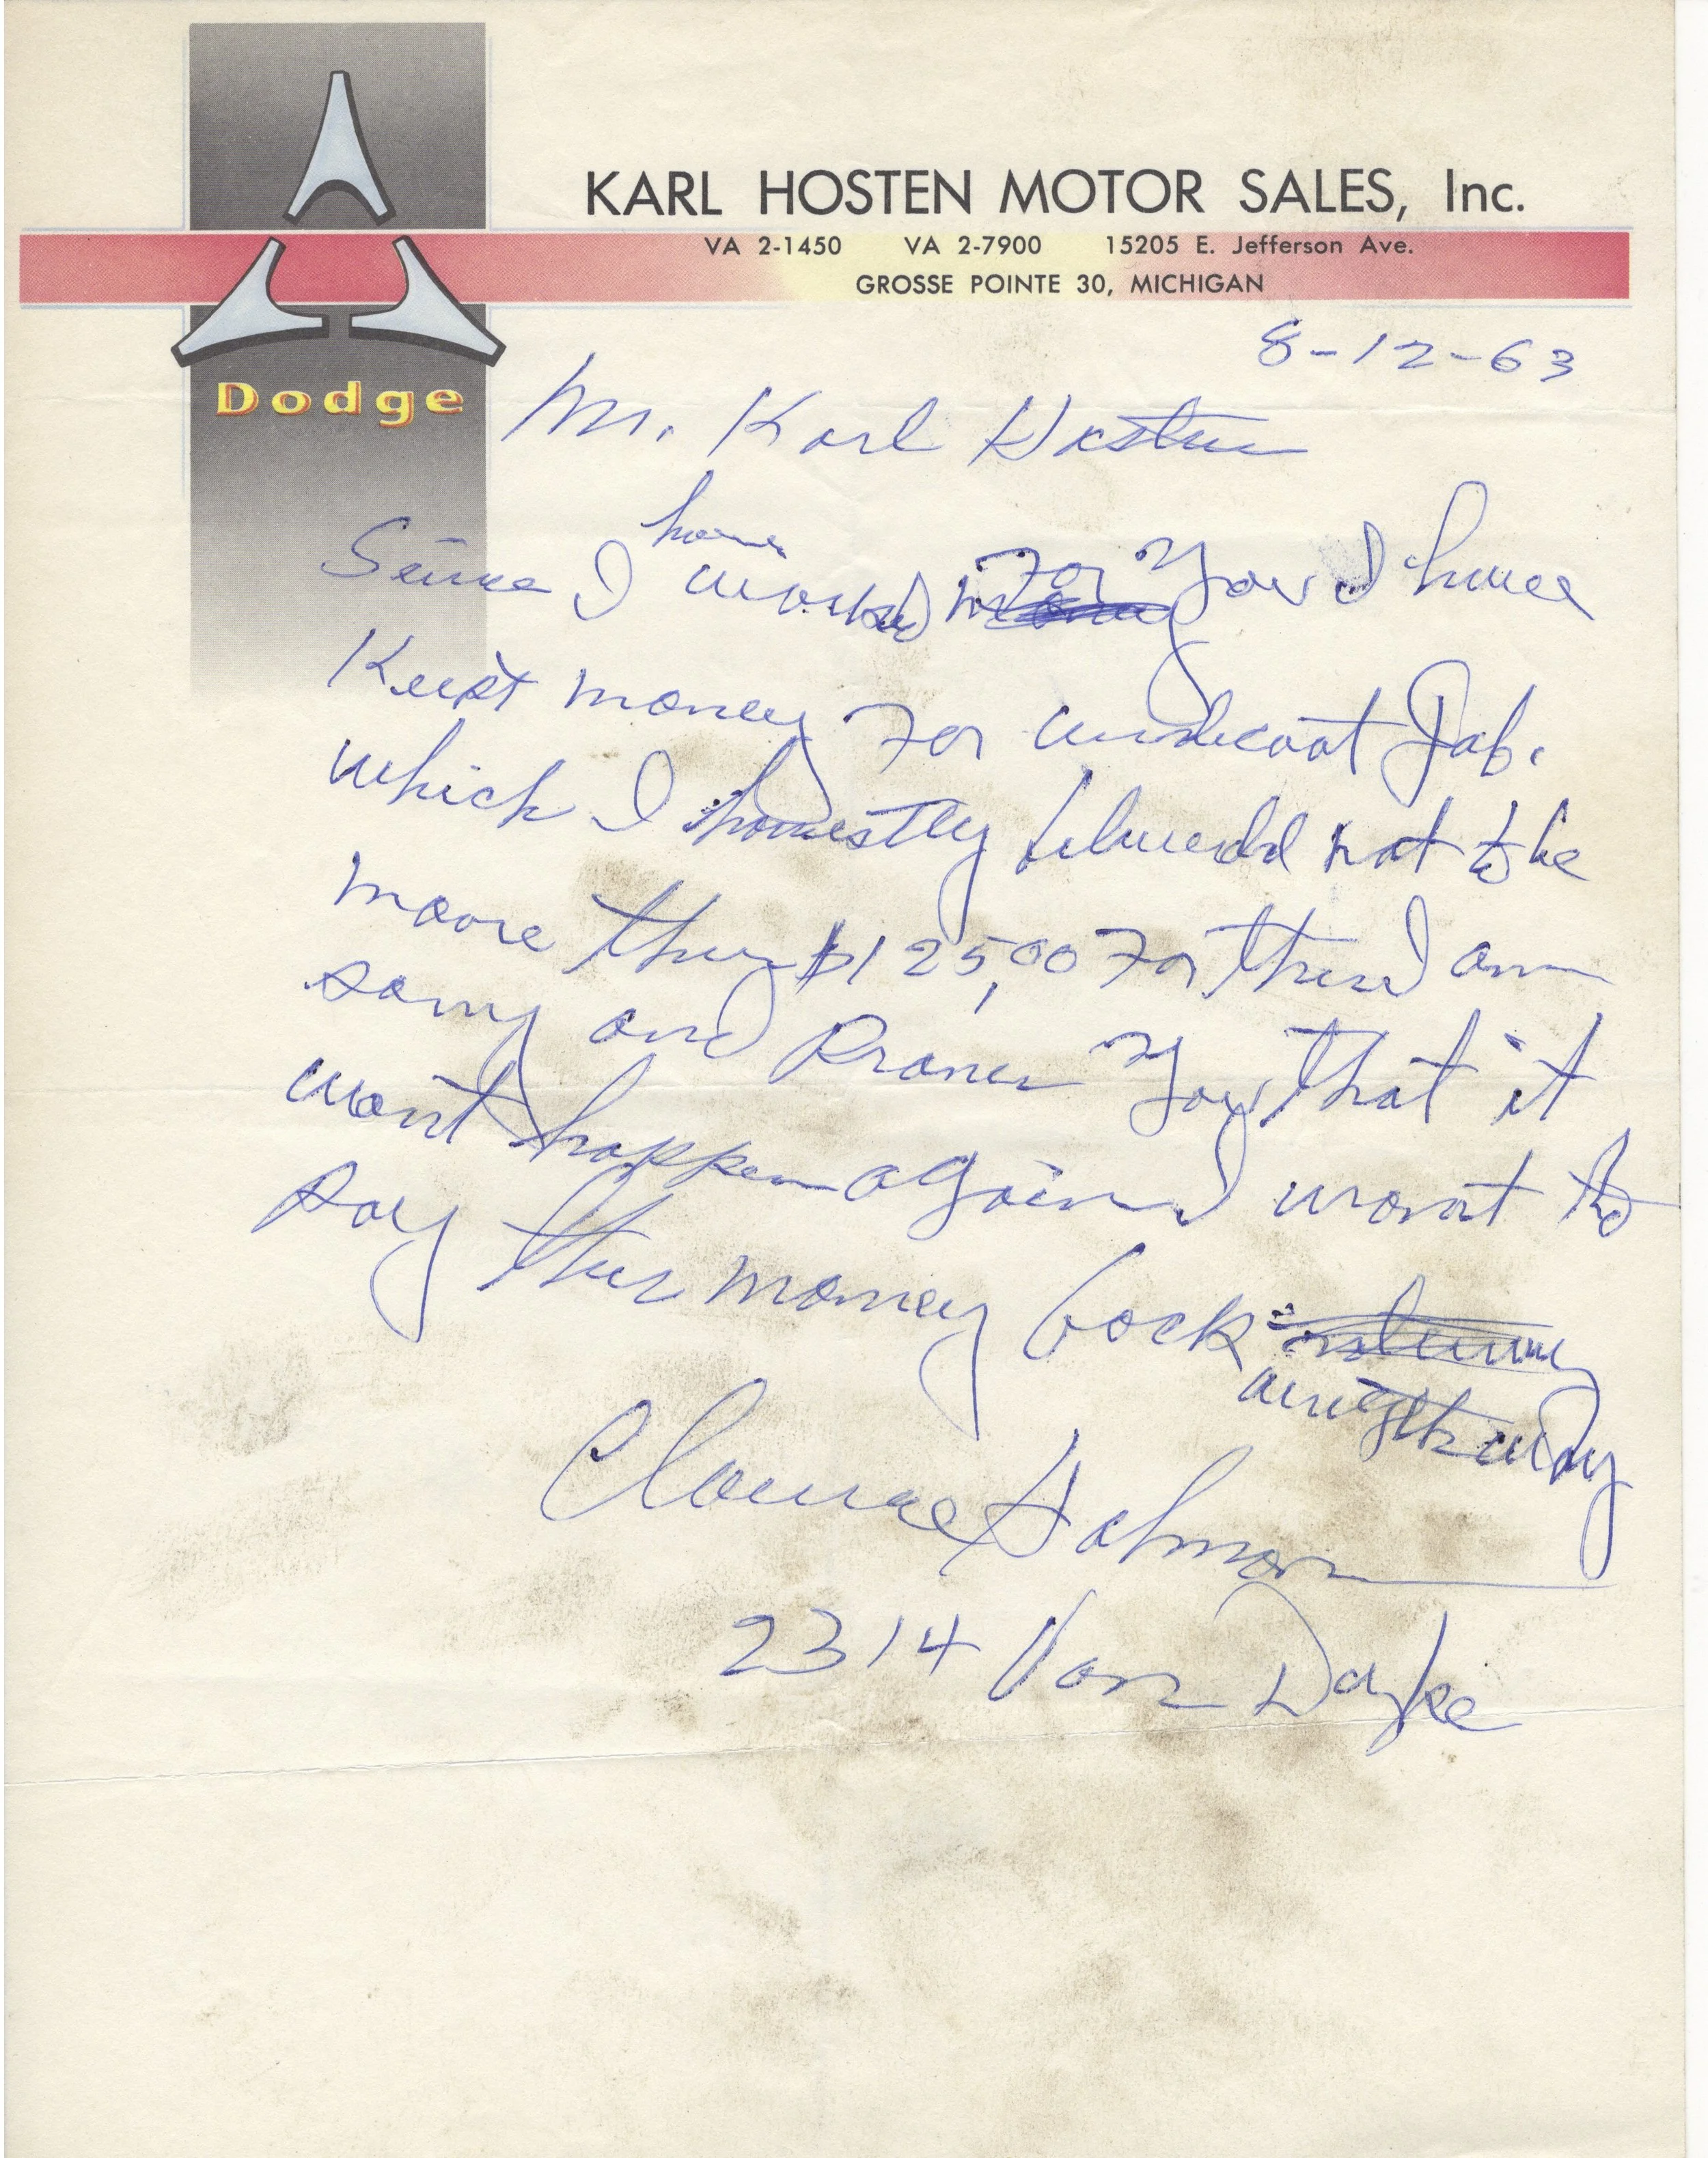 KARL HOSTEN MOTOR SALES, Inc.
VA 2-1450 VA 2-7900 15205 E. Jefferson Ave.
GROSSE POINTE 30, MICHIGAN
Dodge
8-12-63
Mr. Karl Hosten
have
Since I worked for You I have
Keept money For undecoat Job.
which I honestly beleved not to be
moore then $125,00 For this I am
sorry and you that it
wont happen again I wont to
pay this money back
Holmon
2314 Van Dyke